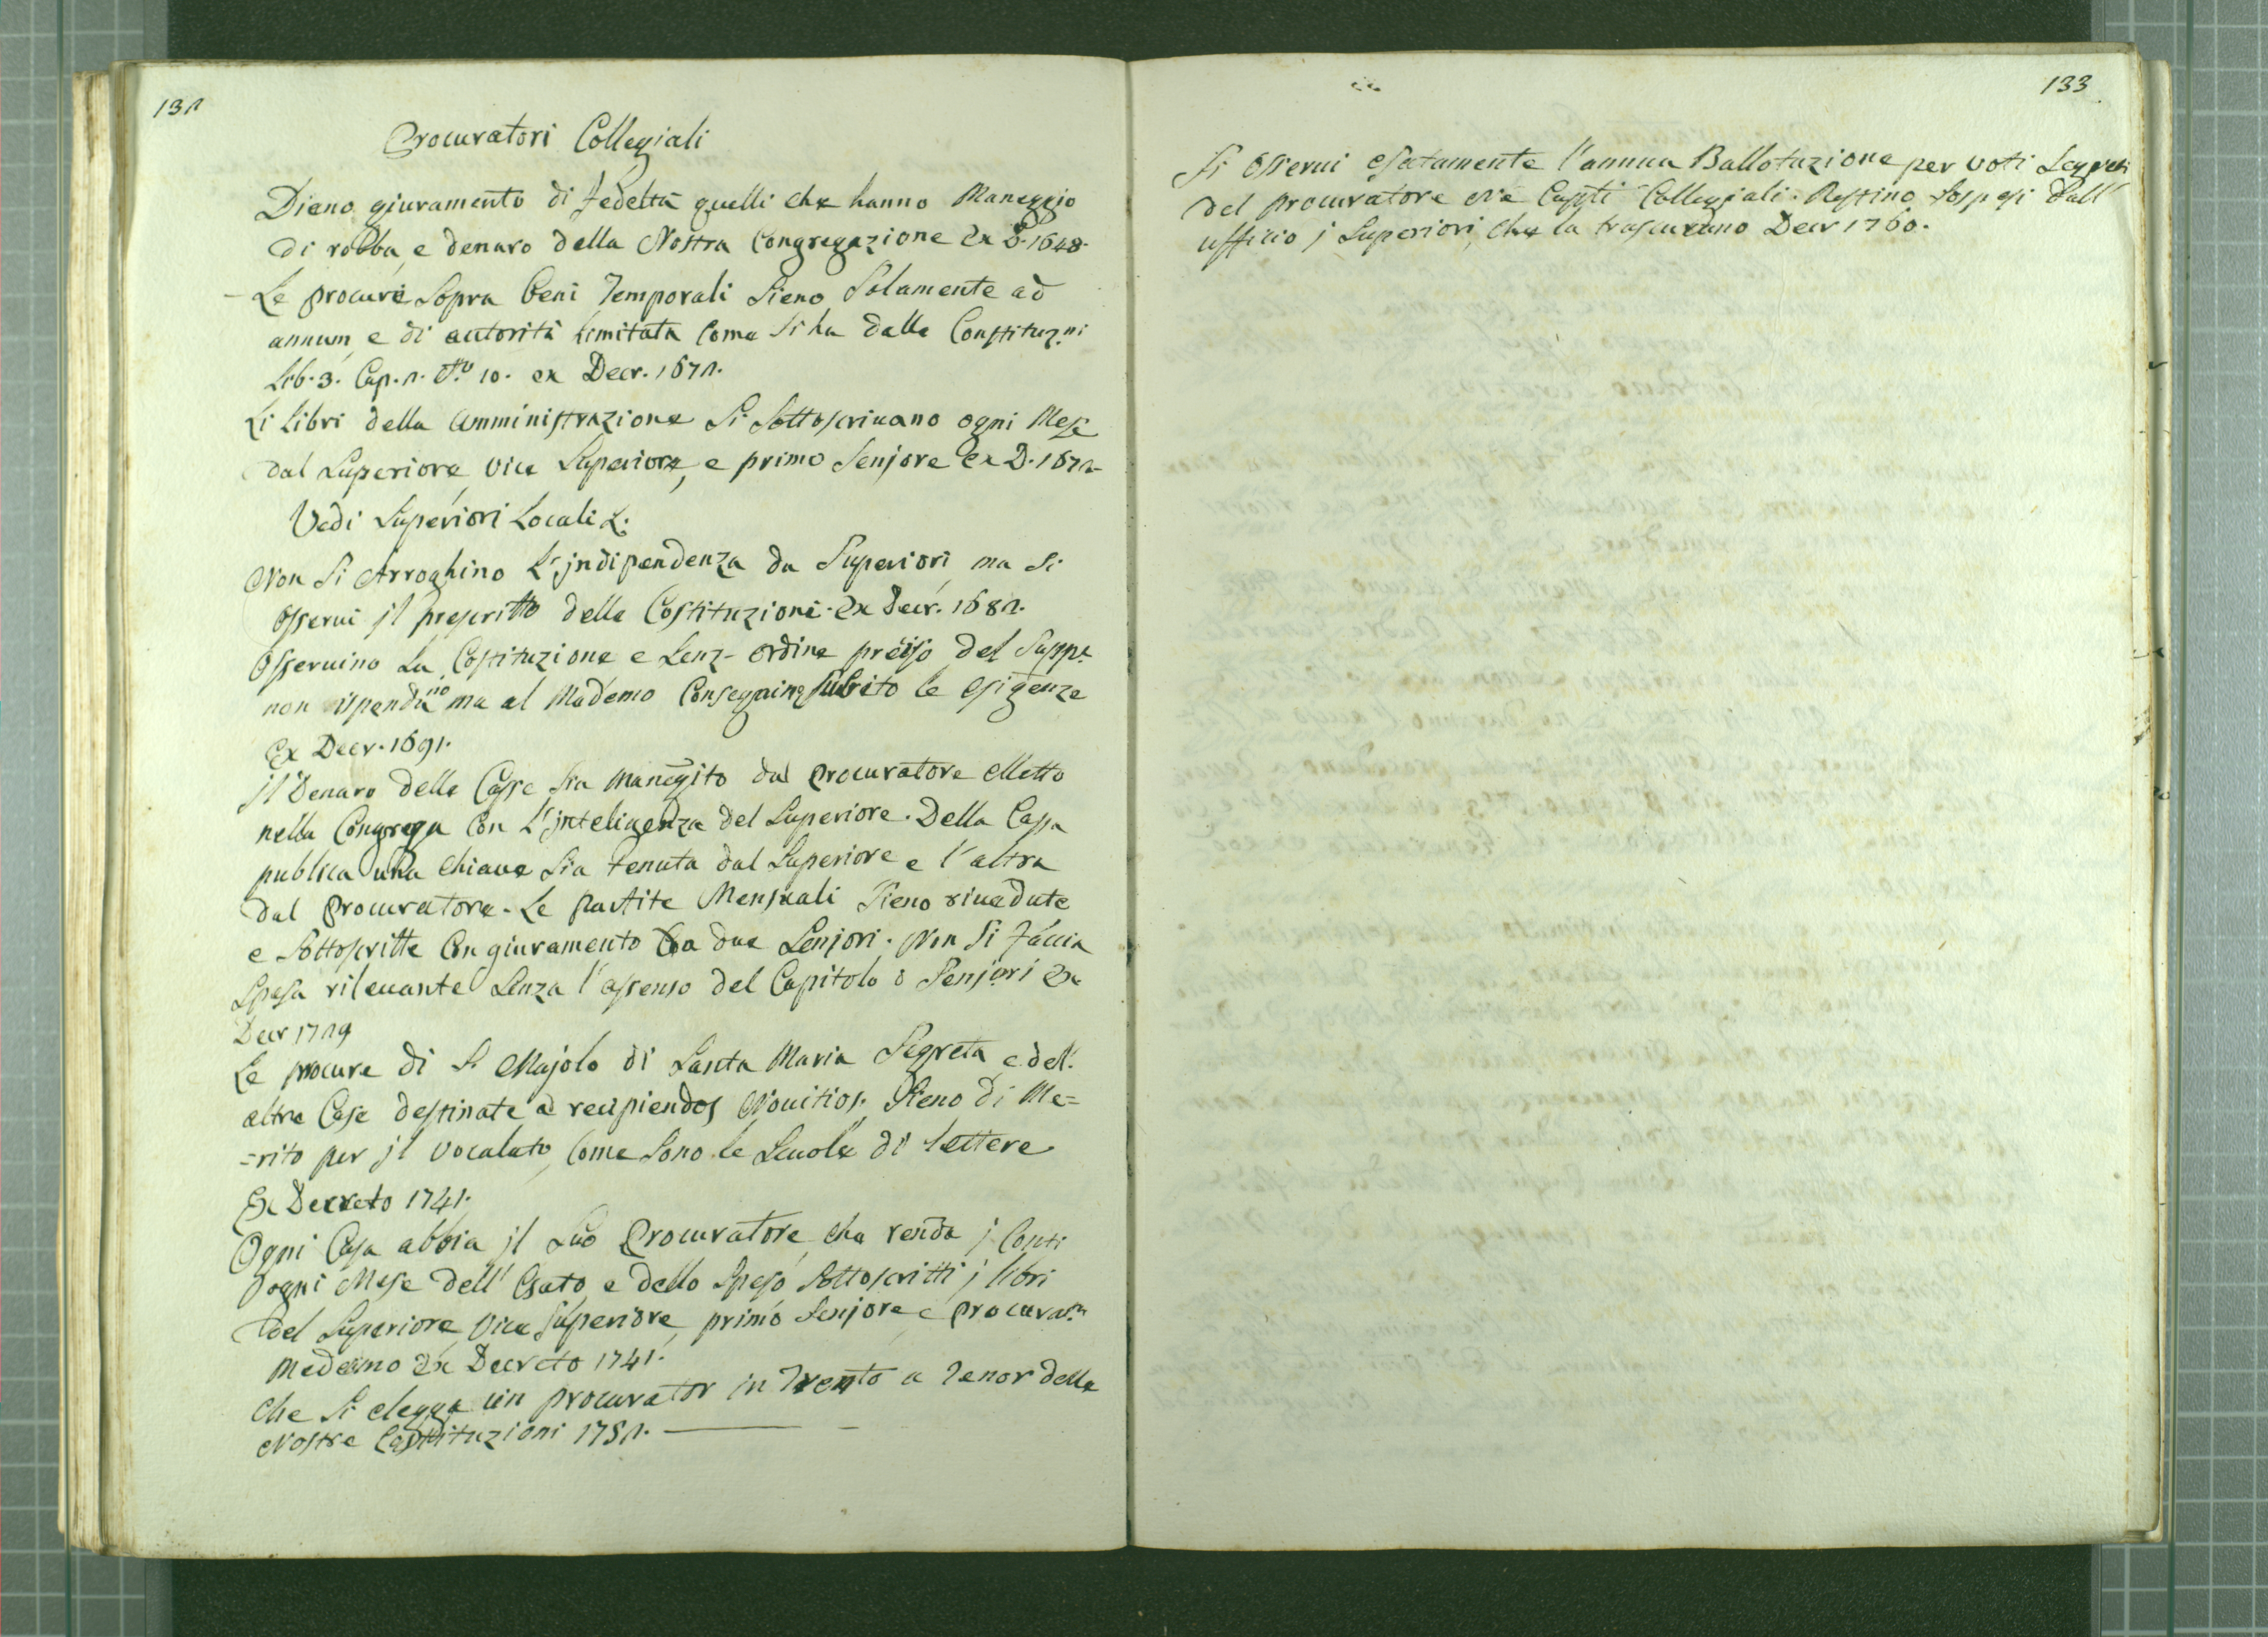 132
Procuratori Collegiali
Dieno giuramento di fedeltà quelli che hanno Maneggio
di robba, e denaro della Nostra Congregazione Ex D. 1648.
- Le procure Sopra beni Temporali Sieno Solamente ad
annum, e di autorità limitata Come Si ha dalle Constituz.ni
Lib. 3. Cap. 2. N.o 10. ex Decr. 1672.
Li Libri della Amministrazione Si Sottoscrivano ogni Mese
dal Superiore, Vice Superiore, e primo Seniore Ex D. 1672
Vedi Superiori Locali L.
Non Si Arroghino L'jndipendenza da Superiori, ma Si
Osservi jl prescritto delle Costituzioni. Ex Decr. 1682.
Osservino La Costituzione e Senz- ordine preciso del Supp.e
non ispendino ma al Mademo Conseguino Subito le esigenze
Ex Decr. 1691.
jl Denaro delle Casse Sia manegito dal Procuratore eletto
nella Congrega Con L'jnteligenza del Superiore. Della Cassa
publica una Chiave Sia tenuta dal Superiore e l'altra
dal Procuratore. Le partite Mensuali Sieno rivedute
e Sottoscritte Con giuramento da due Senjori. Non Si faccia
Spesa rilevante Senza l'assenso del Capitolo o Senjori Ex
Decr 1729
Le procure di S. Majolo di Santa Maria Segreta e dell.
altre Case destinate ad recipiendos Novitios. Sieno di Me=
=rito per jl Vocalato, Come Sono le Scuole di lettere
Ex Decreto 1741.
Ogni Casa abbia jl Suo Procuratore, che renda j Conti
ogni Mese dell' Esato, e dello Speso, Sottoscritti j libri
del Superiore, Vice Superiore, primo Senjore, e procurat.re
Medesimo Ex Decreto 1741.
Che Si elegga un procurator in Trento a Tenor delle
Nostre Constituzioni 1752.
133
Si Osservi esatamente l'annua Ballotazione per voti Segreti
del procuratore ne' Capti Collegiali. Restino Sospesi dall'
ufficio j Superiori, che la trascurano Decr 1760.